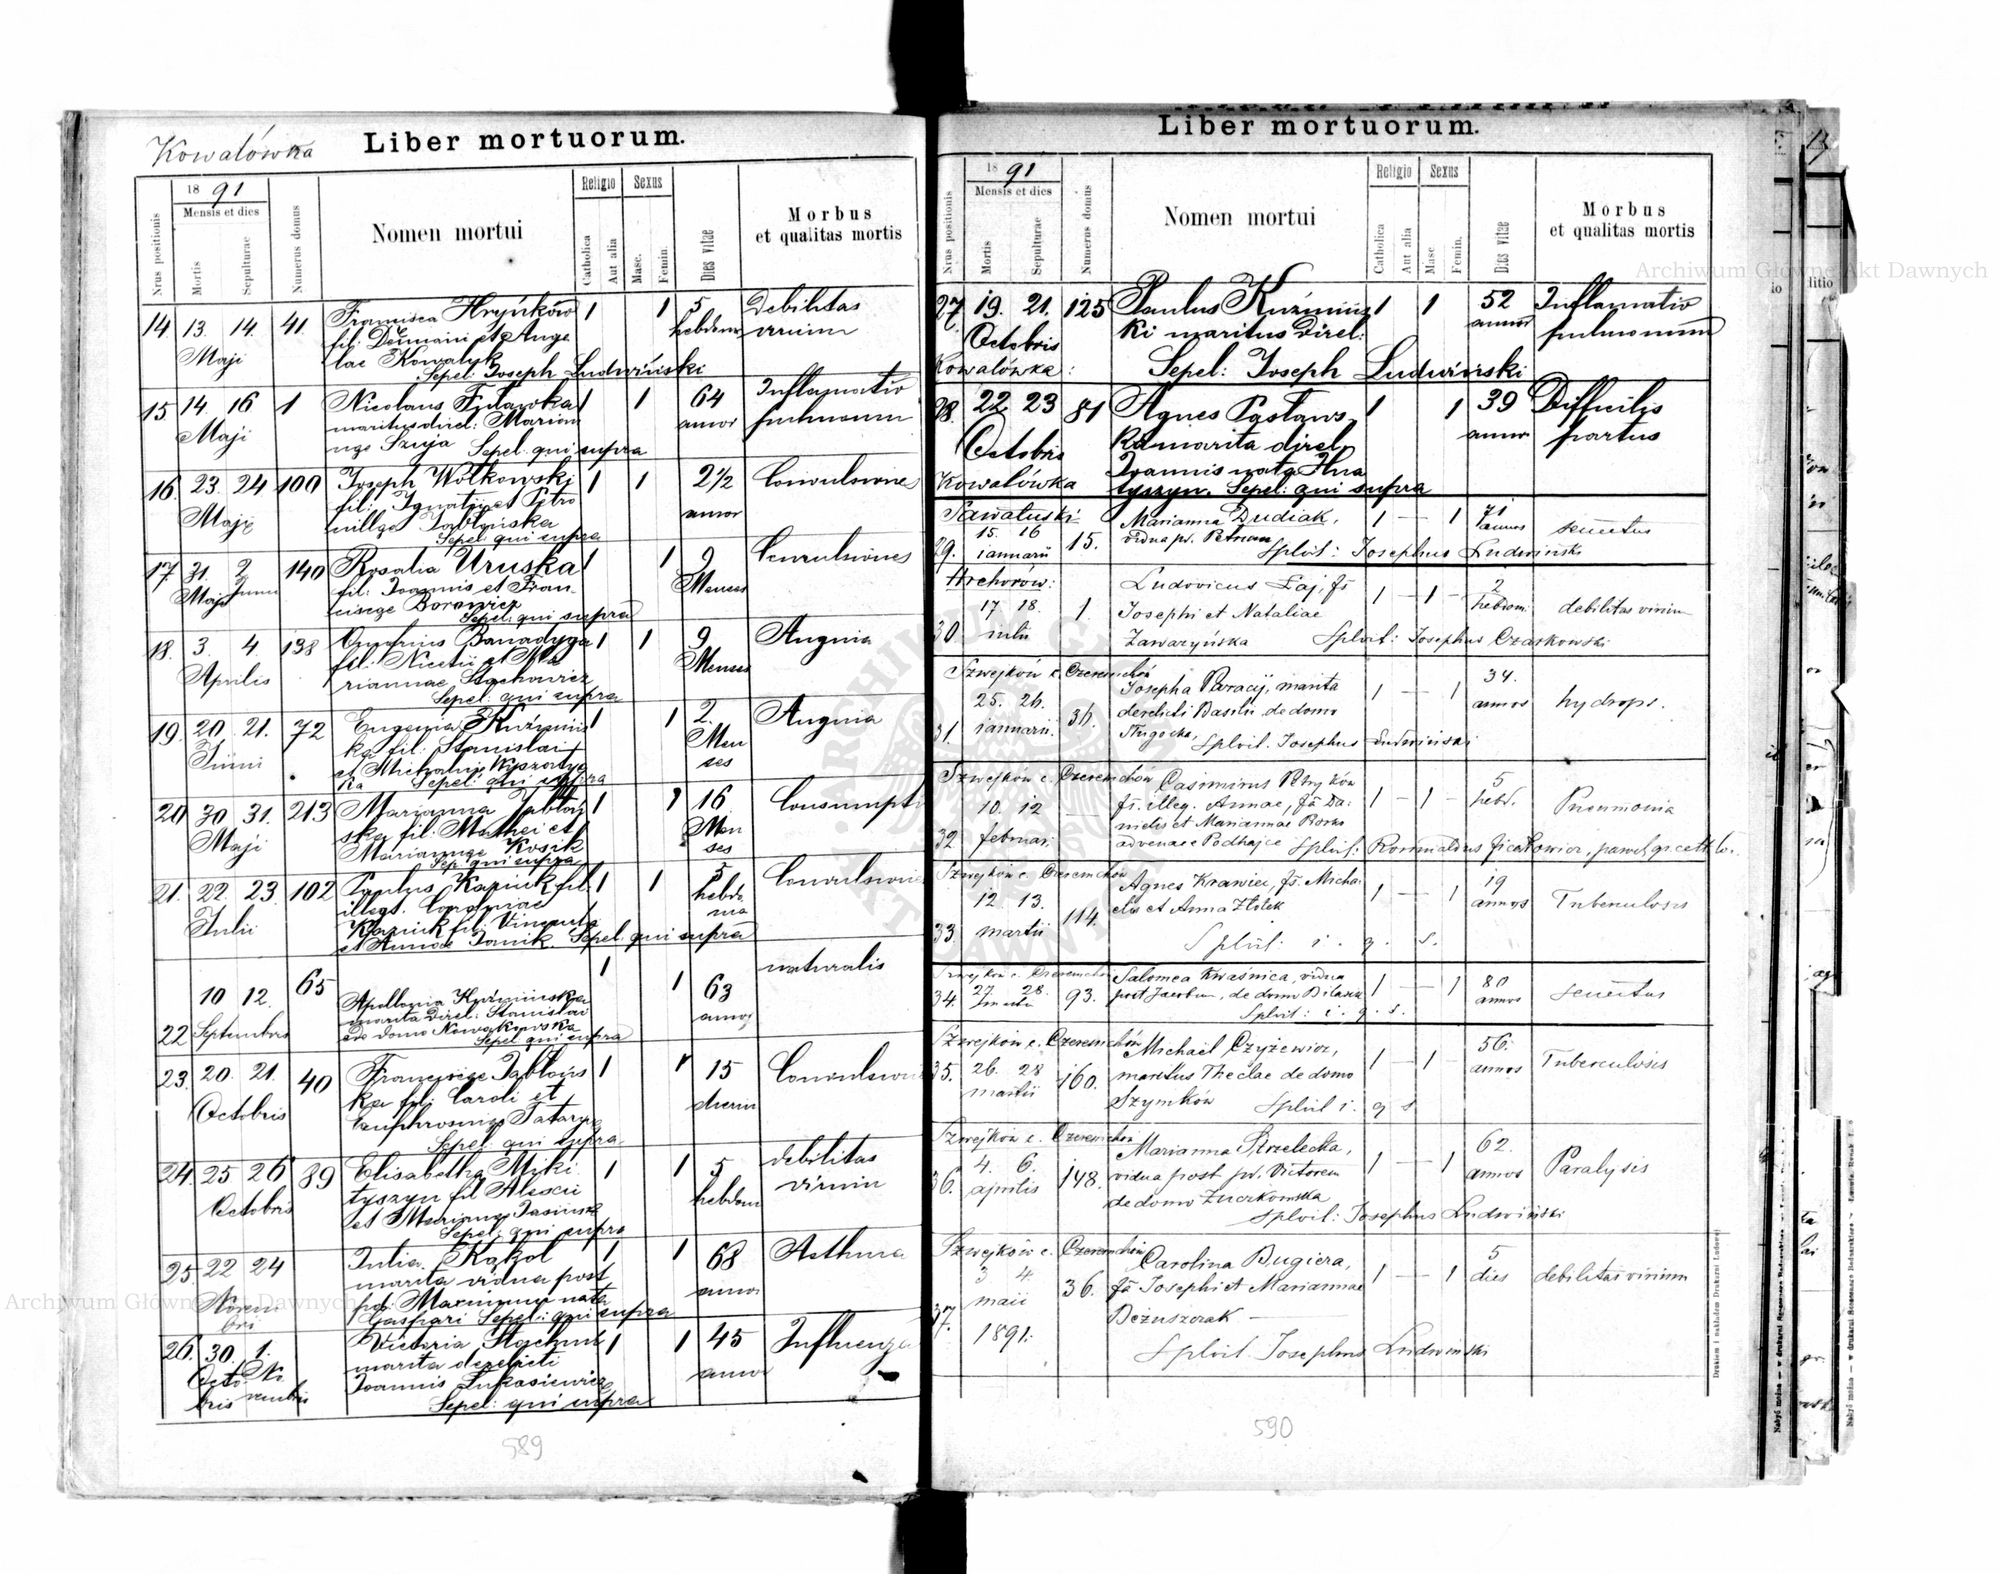 Kowalówka
Liber mortuorum.
Nrus positionis
1891
Mensis et dies
Mortis
Sepulturae
Numerus domus
Nomen mortui
Religio
Catholica
Aut alia
Sexus
Masc.
Femin.
Dies vitae
Morbus
et qualitas mortis
14 13. 14. 41. Francisca Hryńków 1 1 5 Debilitas
Maji fil: Damiani et Ange hebdom virium
lae Kowalyk
Sepel: Joseph Ludwiński
15 14. 16 1 Nicolaus 1 1 64 Inflamatio
Maji maritus direl: Marian annor pulmonum
nae Szuja Sepel. qui supra
16 23. 24 100 Joseph Wolkowski 1 1 2 1/2 Convulsiones
Maji fil: Ignatii et Petro annor
nillae Jabłońska
Sepel: qui supra
17 31. 2. 140 Rosalia Uruska 1 1 9 Convulsiones
Maji Junii fil: Joannis et Fran Menses
ciscae Borowicz
Sepel: qui supra
18. 3. 4. 138 Onufrius Banadyga 1 1 9 Angina
Aprilis fil: Nicetii et Ma Menses
riannae Stachowicz
Sepel. qui supra
19. 20. 21. 72 Eugenia Kuźmiń 1 1 2. Angina
Junii ska fil: Stanislai Men
et Michalinae ses
ka Sepel: qui supra
20 30 31. 213 Marianna Jabłoń 1 1 16 Consumpti
Maji ska fil. Mathei et Men
Mariannae Kosik ses
Sep: qui supra
21. 22. 23. 102 Paulus Kaziuk fil. 1 1 5 Convulsiones
Julii illegt. Carolinae hebdo
Kaziuk fil. Vincenti ma
et Annae Janik. Sepel. qui supra
22 10 12. 65 Apollonia Kuźmińska 1 1 63 naturalis
Septembris marita direl: Stanislai annor
de domo Nowakowska
Sepel qui supra
23. 20. 21. 40 Franciscae Jabłońs 1 1 15 Convulsiones
Octobris ka fil: Caroli et dierum
Euphrosinae Tataryn
Sepel. qui supra
24. 25 26 89 Elisabetha Myki 1 1 5 debilitas
Octobris tyszyn fil Alexii hebdom virium
et Mariannae Jasinsk
Sepel: qui supra
25 22 24 Julia Kąkol 1 1 68 Asthma
Novem marita vidua post annor
bri pd. nata
Gaspari Sepel: qui supra
26. 30. 1. Victoria Stachnik 1 1 45 Influenza
Octo No marita derelicti annor
bris vembris Joannis Łukasiewicz
Sepel: qui supra
589
Liber mortuorum.
Nrus positionis
1891
Mensis et dies
Mortis
Sepulturae
Numerus domus
Nomen mortui
Religio
Catholica
Aut alia
Sexus
Masc
Femin.
Dies vitae
Morbus
et qualitas mortis
27 19. 21. 125 Paulus Kuźmińs 1 1 52 Inflamatio
Octobris ki maritus direl: annor pulmonum
Kowalówka: Sepel: Joseph Ludwiński
28. 22. 23 81 Agnes Pasławs 1 1 39 Difficilis
Octobris ka marita direl. annor partus
Joannis nata Hna
Kowalówka tyszyn. Sepel: qui supra
Sawałuski Marianna Dudiak, 1 — 1 71 senectus
29. 15. 16 15. vidua pt. Petrum annos
ianuarii Splvit: Josephus Ludwiński
Hrehorów: Ludovicus Łaj, fs 1 — 1 — 2 debilitas virium
30 17 18. 1. Josephi et Nataliae hebdom.
iulii Zawarzyńska Splvit: Josephus Czaskowski
Szwejków c. Czeremchów
31. 25. 26. 36. Josepha Paracij, marita 1 — 1 34. hydrops.
ianuarii. derelicti Basilii de domo annos
Splvit. Josephus Ludwiński
Szwejków c. Czeremchów Casimirus Petryków 5 Pneumonia
32 10. 12 — fs. illeg. Annae, fa Da: 1 — 1 — hebd.
februar. nielis et Mariannae Borko
advenae e Podhajce Splvit: Romualdus
Szwejków c. Czeremchów
33. 12. 13. 114. Agnes Krawiec, fs. Micha 1 — 1 19 Tuberculosis
martii elis et Anna Złotek annos
Splvit: i. q. s.
Szwejków c. Czeremchów Salomea Kwaśnica, vidua
34. 27. 28. 93. post Jacobum, de domo 1 — 1 80 senectus
martii Splvit: i. q. s. annos
Szwejków c. Czeremchów
35. 26. 28 160. Michael Czyżewicz, 1 — 1 — 56. Tuberculosis
martii maritus Theclae de domo annos
Szymków Splvit i. q s
Szwejków c. Czeremchów
36. 4. 6. 148. Marianna Strzelecka, 1 — 1 62. Paralysis
aprilis vidua post pd. Victorem annos
de domo Zuczkowska
Splvit: Josephus Ludwiński
Szwejków c. Czeremchów
37. 3 4. 36. Carolina Bugiera, 1 — 1 5 debilitas virium
maii fa Josephi et Mariannae dies
1891. Bezuszczak —
Splvit. Josephus Ludwiński
590
Drukiem i nakładem Drukarni Ludowej
Archiwum Główne Akt Dawnych
Archiwum Główne Akt Dawnych